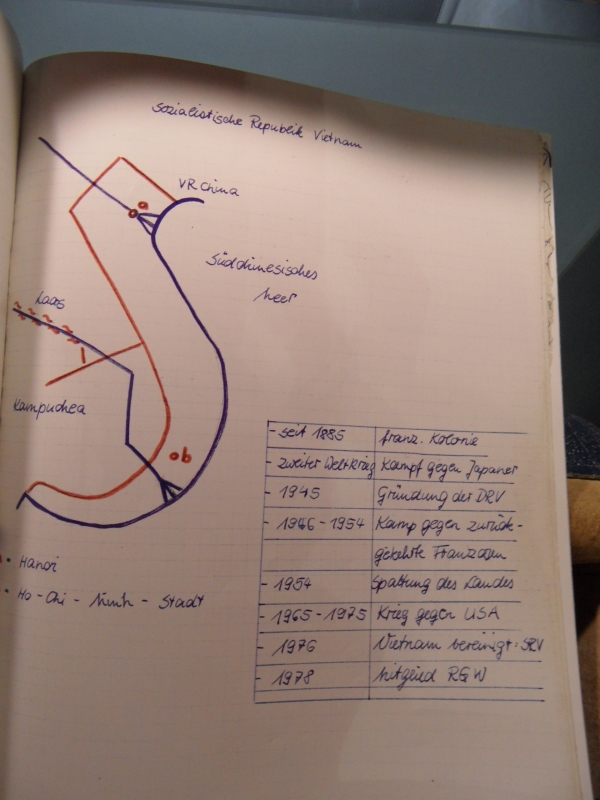 Sozialistische Republik Vietnam
VR China
a
Südchinesisches
Meer
Laos
Kampuchea
b
• Hanoi
• Ho-Chi-Minh-Stadt
- seit 1885 franz. Kolonie
- zweiter Weltkrieg Kampf gegen Japaner
- 1945 Gründung der DRV
- 1946-1954 Kamp gegen zurück-
gekehrte Franzosen
- 1954 Spaltung des Landes
- 1965-1975 Krieg gegen USA
- 1976 Vietnam vereinigt: SRV
- 1978 Mitglied RGW